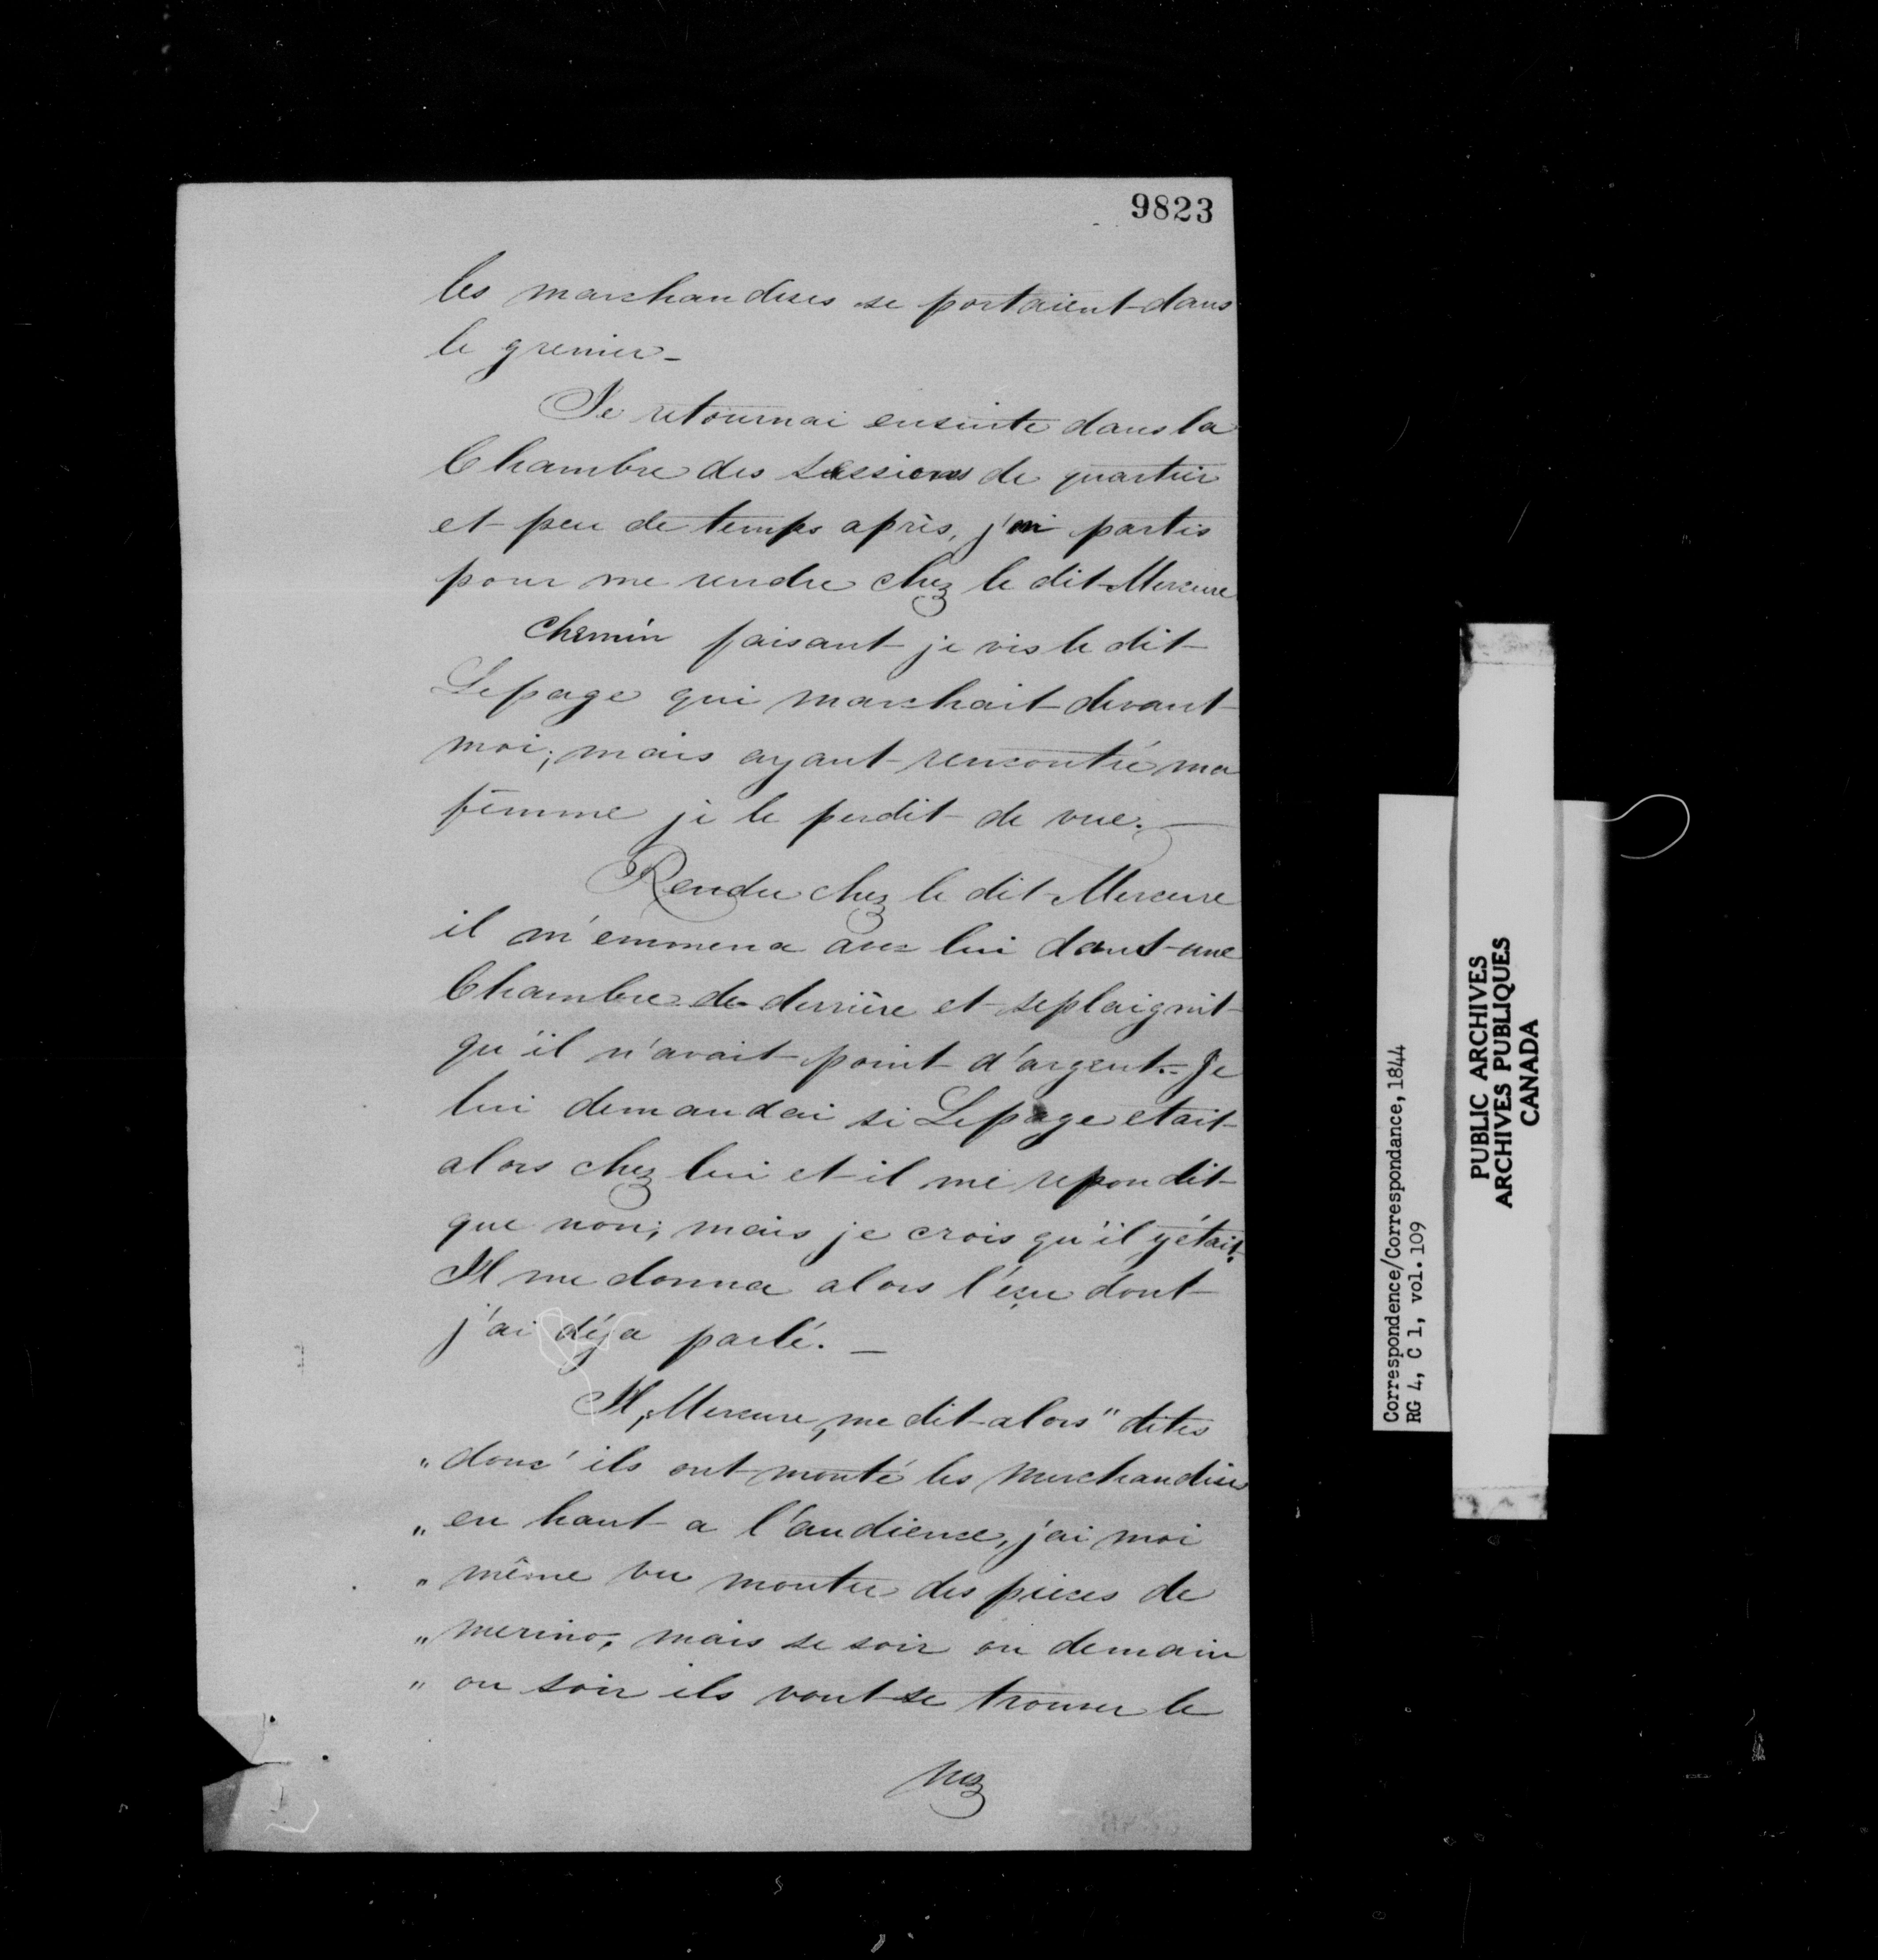 9823
les marchandises se portaient dans
le grenier -
Je retournai ensuite dans la
Chambre des sessions de quartier
et peu de temps après, j'ai partis
pour me rendre chez le dit Mercure
Chemin faisant je vis le dit
Lepage qui marchait devant
moi; mais ayant rencontré ma
femme je le perdit de vue. —
Rendu chez le dit Mercure
il m'emmena avec lui dans une
Chambre de derrière et se plaignit
qu'il n'avait point d'argent. - Je
lui demandai si Lepage etait
alors chez lui et il me repondit
que non; mais je crois qu'il y était.
Il me donna alors l'écu dont
j'ai déja parlé. —
Il, Mercure, me dit alors " dites
" donc' ils ont monté les marchandises
" en haut a l'audience, j'ai moi
" même vu monter des pieces de
" merino, mais se soir ou demain
" au soir ils vont se trouver le
nez
Correspondence/Correspondance, 1844
RG 4, C 1, vol. 109
PUBLIC ARCHIVES
ARCHIVES PUBLIQUES
CANADA